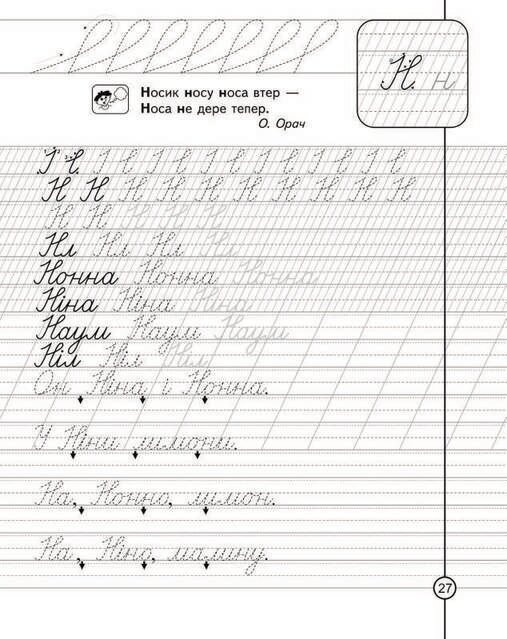 Н н
Носик носу носа втер —
Носа не дере тепер.
О. Орач
Н Н Н Н Н Н Н Н Н Н
Н Н Н Н Н
Нл Нл Нл Нл
Нонна Нонна Нонна
Ніна Ніна Ніна
Наум Наум Наум
Ніл Ніл Ніл
Он Ніна і Нонна.
У Ніни лимони.
На, Нонно, лимон.
На, Ніно, малину.
27